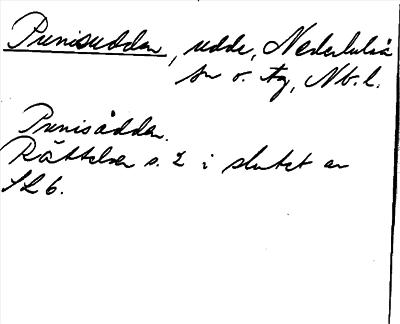 Prinisudden, udde, Nederluleå
sn o. tg, Nb. l.
Prinisådden.
Rättelser s. 2 i slutet av
SL 6.